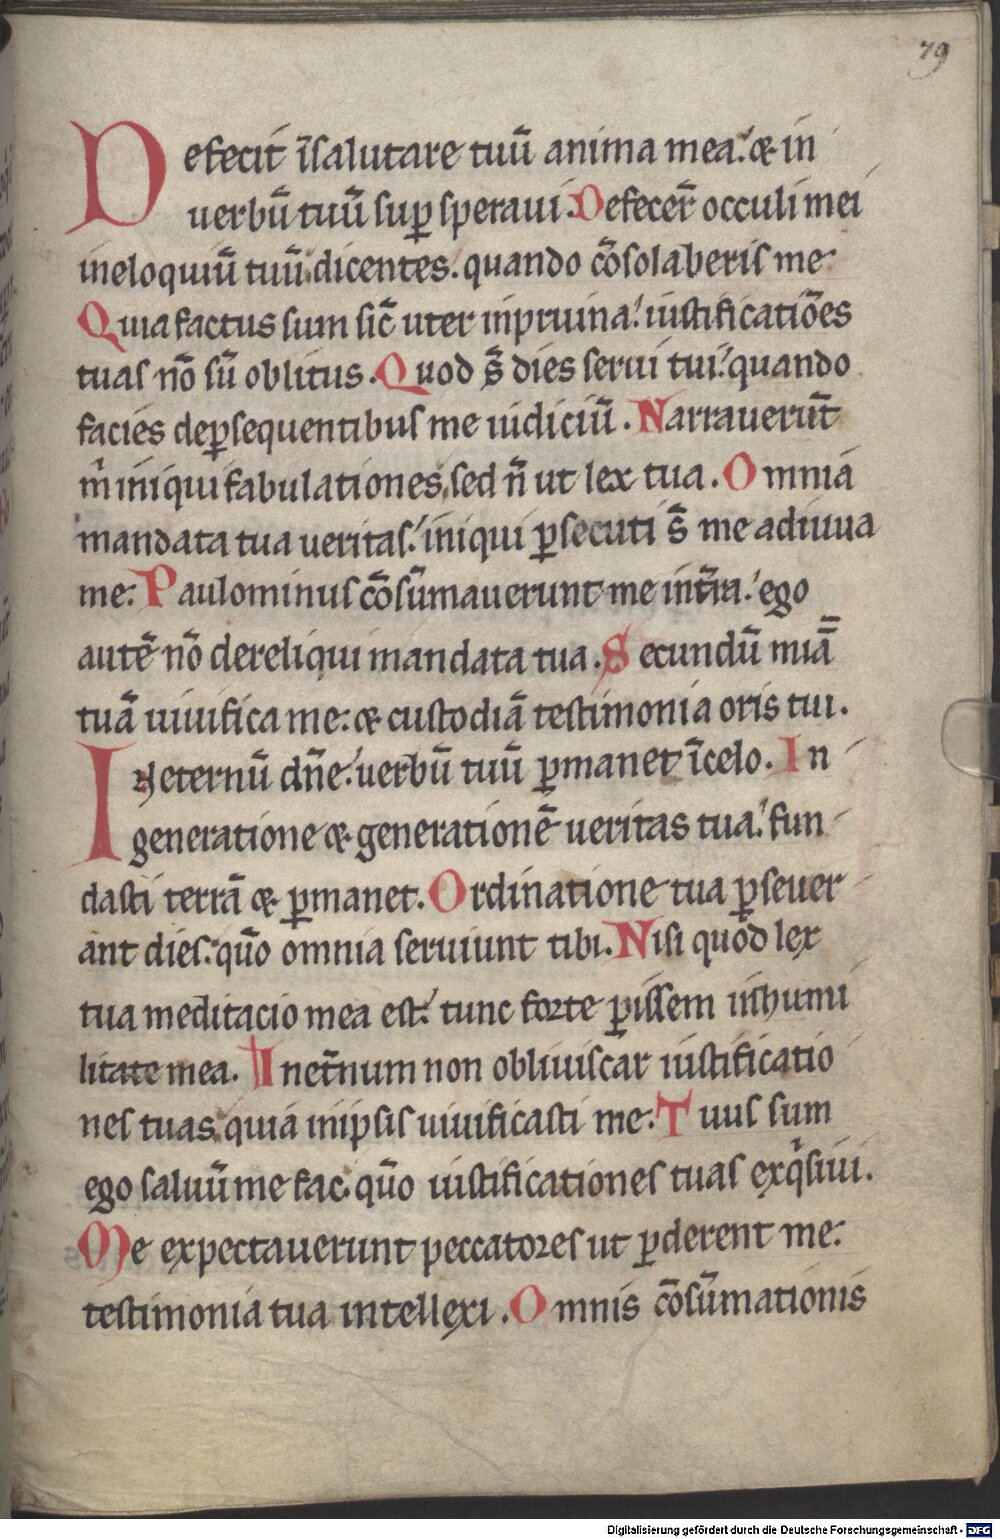 79
Defecit ĩsalutare tuũ anima mea. & in
uerbũ tuũ suꝑ speraui. Defecer̃ occuli mei
ineloquiũ tuũ. dicentes. quando cõsolaberis me
Quia factus sum sic̃ uter inpruina. iustificatiões
tuas nõ sũ oblitus. Quod s̃ dies serui tui. quando
facies deꝑsequentibus me iudiciũ. Narrauerũt
m̃ iniqui fabulationes, sed ñ ut lex tua. Omnia
mandata tua ueritas. iniqui ꝑsecuti s̃ me adiuua
me: Paulominus cõsũmauerunt me int̃ra. ego
autẽ nõ dereliqui mandata tua. Secundũ miã
tuã uiuifica me: & custodiã testimonia oris tui.
Ineternũ dñe. uerbũ tuũ ꝑmanet ĩcelo. In
generatione & generationẽ ueritas tua. fun
dasti terrã & ꝑmanet. Ordinatione tua ꝑseuer
ant dies. quõ omnia seruiunt tibi. Nisi quod lex
tua meditacio mea est. tunc forte ꝑissem inhumi
litate mea. Inet̃num non obliuiscar iustificatio
nes tuas. quia inipsis uiuificasti me: Tuus sum
ego saluũ me fac. quõ iustificationes tuas exq̃siui.
Me expectauerunt peccatores ut ꝑderent me:
testimonia tua intellexi. Omnis cõsũmationis
Digitalisierung gefördert durch die Deutsche Forschungsgemeinschaft - DFG